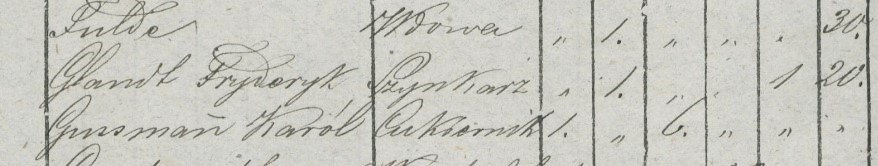 Fulde Wdowa „ 1. „ „ . 30.
Glandt Fryderyk Szynkarz „ 1. „ „ 1 20.
Gussmañ Karól Cukiernik 1. „ 6. „ „ „